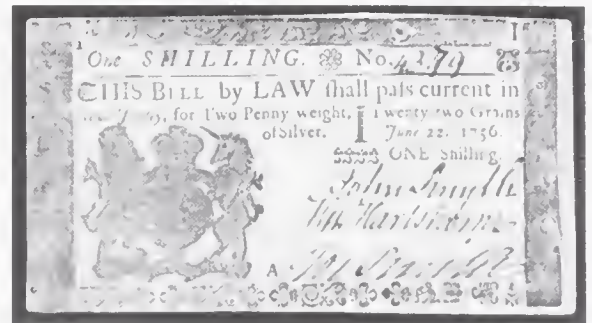 I
One SHILLING. No. 4379
THIS BILL by LAW ſhall paſs current in
for Two Penny weight, Twenty-two Grains
of Silver. I June 22. 1756.
ONE Shilling.
John Smyth
A